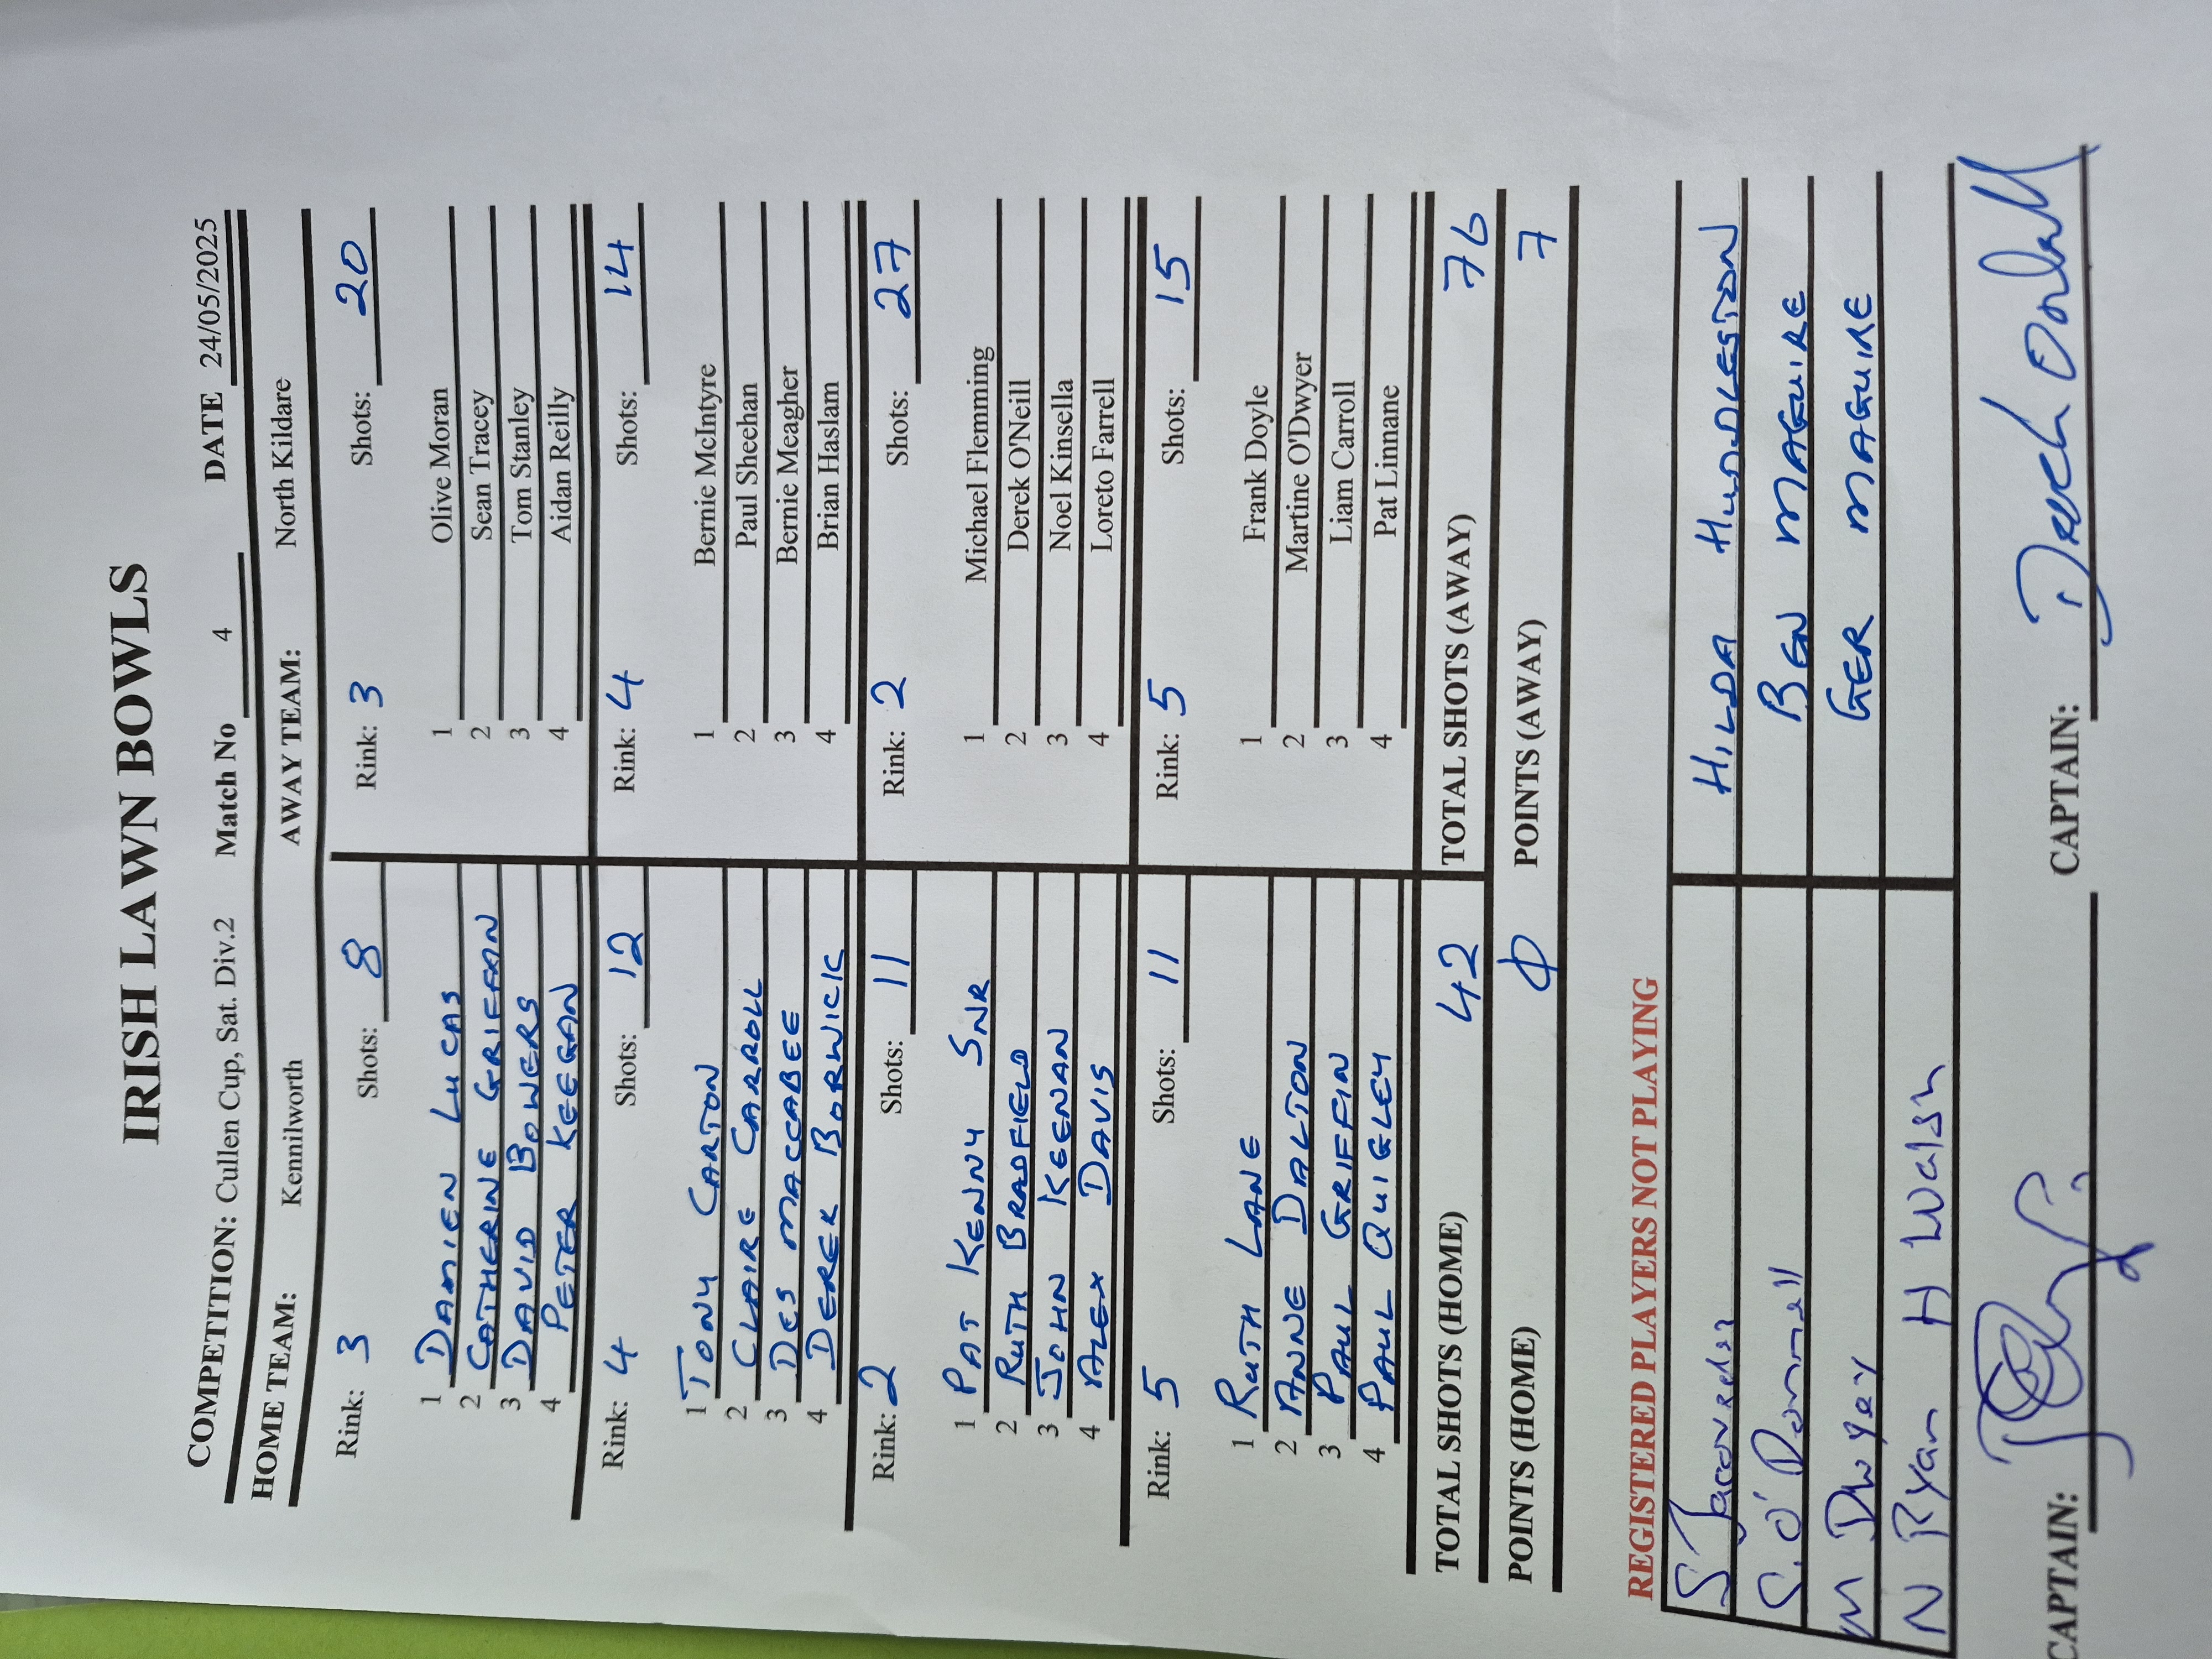 IRISH LAWN BOWLS
COMPETITION: Cullen Cup, Sat. Div.2 Match No 4 DATE 24/05/2025
HOME TEAM: Kennilworth AWAY TEAM: North Kildare
Rink: 3 Shots: 8 Rink: 3 Shots: 20
1 DAMIEN LUCAS 1 Olive Moran
2 CATHERINE GRIFFAN 2 Sean Tracey
3 DAVID BOWERS 3 Tom Stanley
4 PETER KEEGAN 4 Aidan Reilly
Rink: 4 Shots: 12 Rink: 4 Shots: 14
1 TONY CARTON 1 Bernie McIntyre
2 CLAIRE CARROLL 2 Paul Sheehan
3 DES MACCABEE 3 Bernie Meagher
4 DEREK BORWICK 4 Brian Haslam
Rink: 2 Shots: 11 Rink: 2 Shots: 27
1 PAT KENNY SNR 1 Michael Flemming
2 RUTH BRADFIELD 2 Derek O'Neill
3 JOHN KEENAN 3 Noel Kinsella
4 ALEX DAVIS 4 Loreto Farrell
Rink: 5 Shots: 11 Rink: 5 Shots: 15
1 RUTH LANE 1 Frank Doyle
2 ANNE DALTON 2 Martine O'Dwyer
3 PAUL GRIFFIN 3 Liam Carroll
4 PAUL QUIGLEY 4 Pat Linnane
TOTAL SHOTS (HOME) 42 TOTAL SHOTS (AWAY) 76
POINTS (HOME) 0 POINTS (AWAY) 7
REGISTERED PLAYERS NOT PLAYING
S HILDA HUDDLESTON
S. O'Donnell BEN MAGUIRE
M Dwyer GER MAGUIRE
N Ryan H Walsh
CAPTAIN: CAPTAIN: